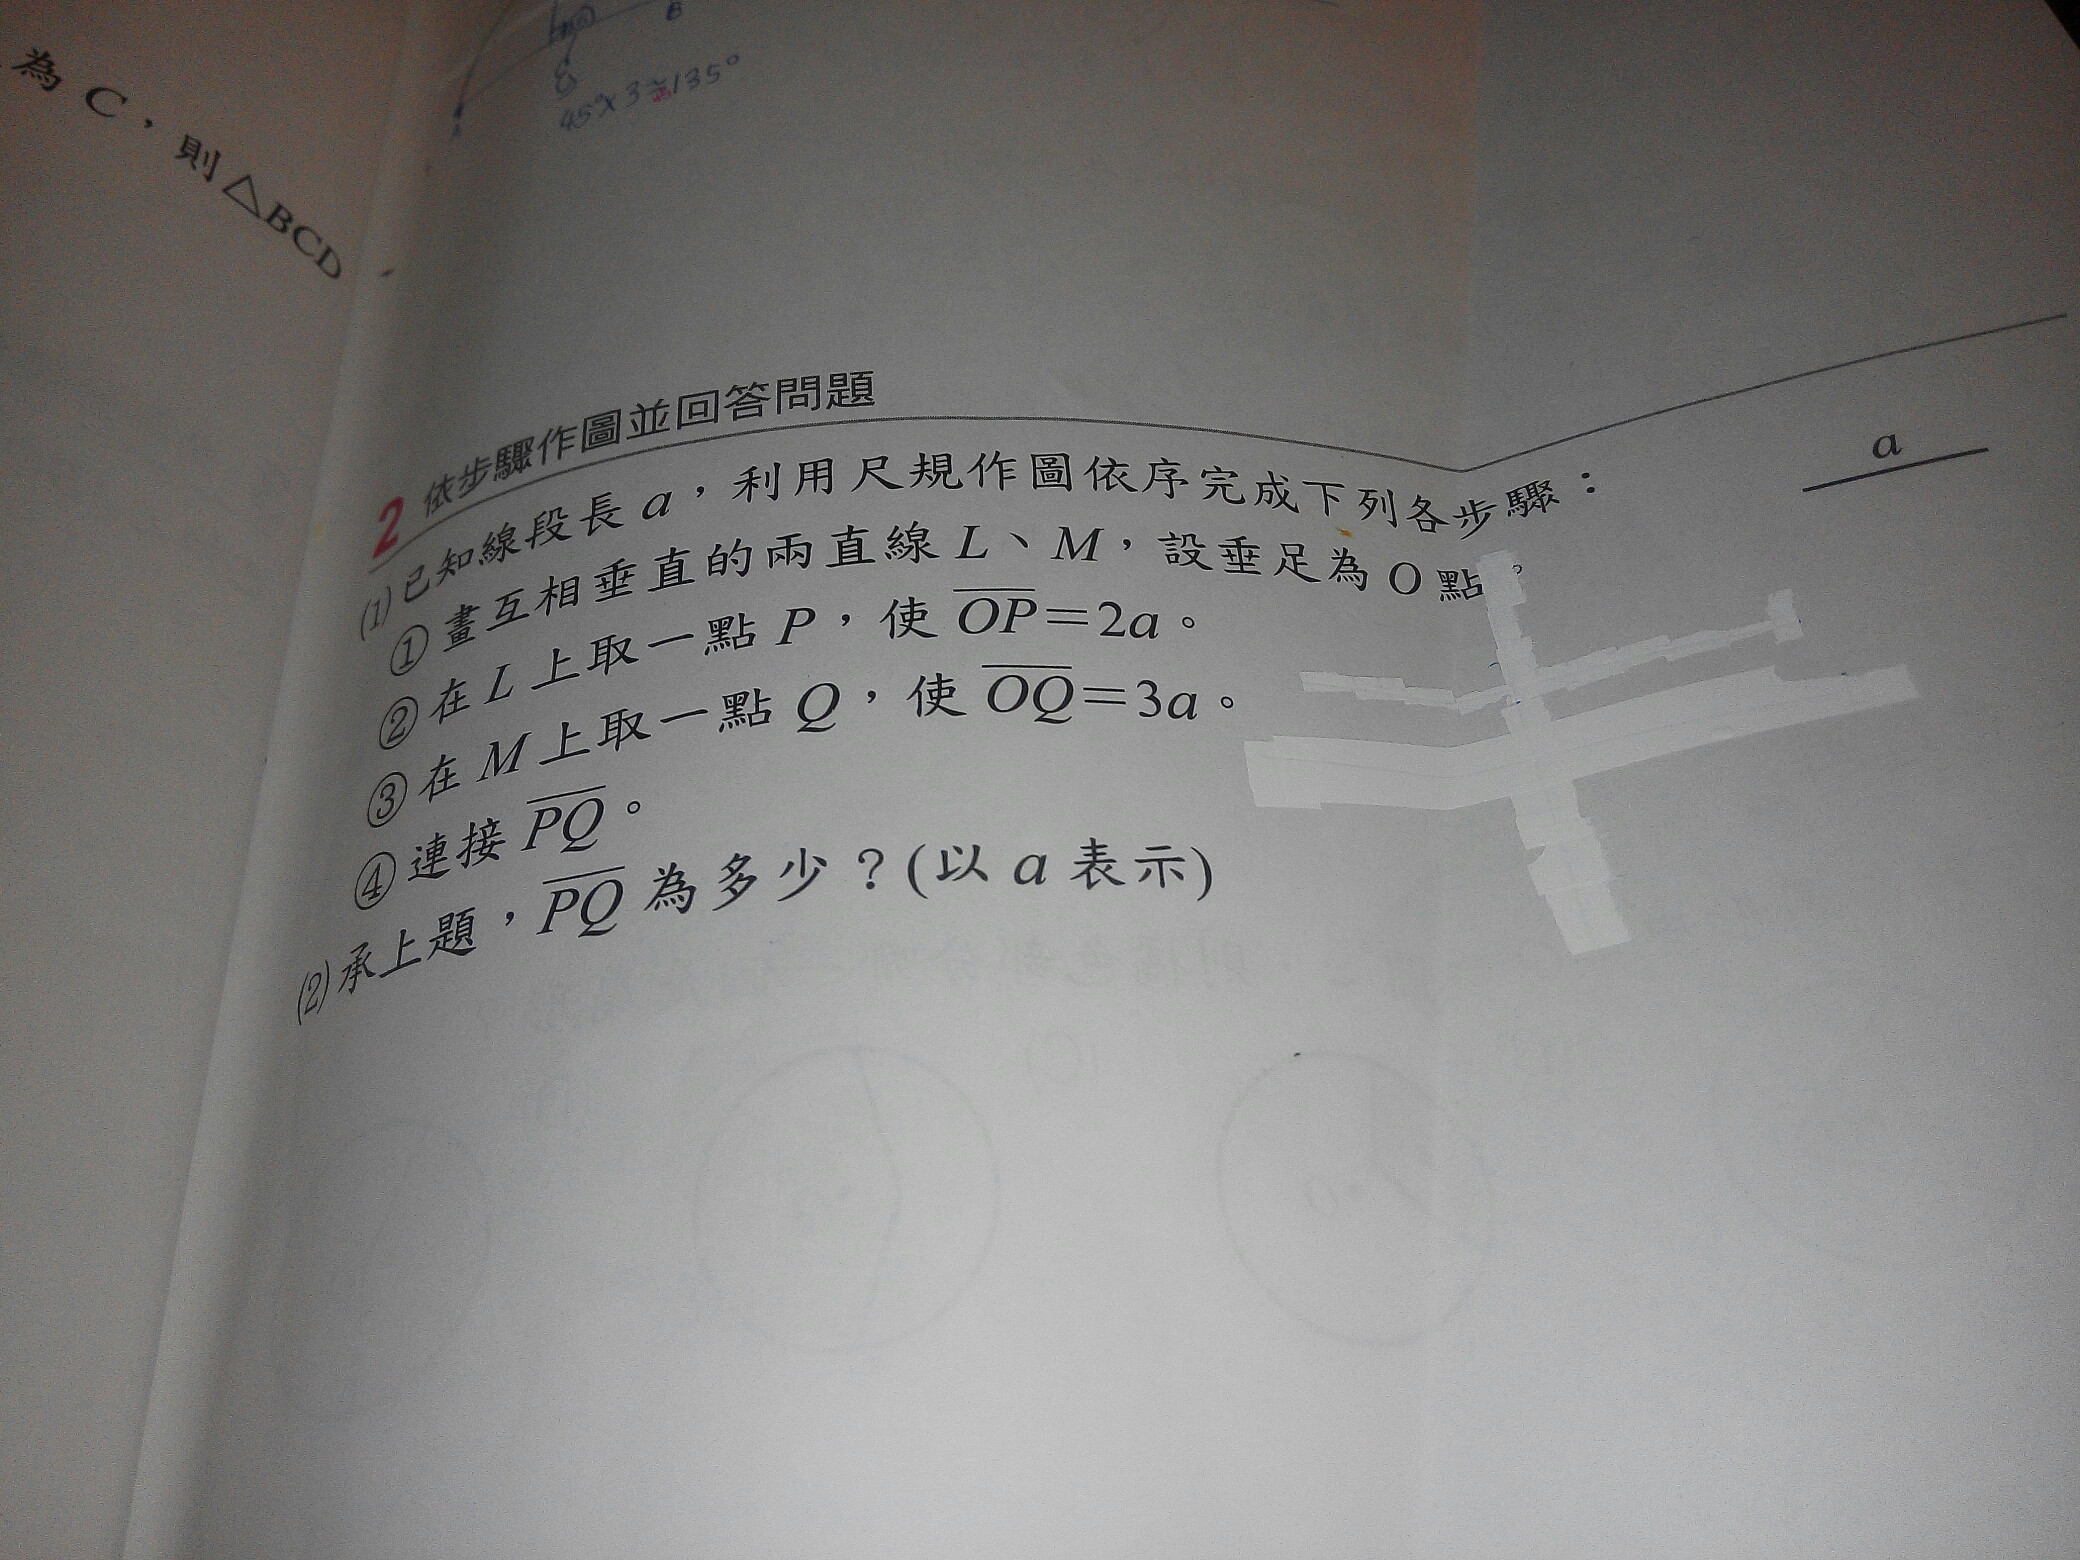 為 C，則△BCD
B
45°×3=135°
2 依步驟作圖並回答問題
a
(1)已知線段長 a，利用尺規作圖依序完成下列各步驟：
①畫互相垂直的兩直線 L、M，設垂足為 O 點。
②在 L 上取一點 P，使 OP=2a。
③在 M 上取一點 Q，使 OQ=3a。
④連接 PQ。
(2)承上題，PQ 為多少？(以 a 表示)